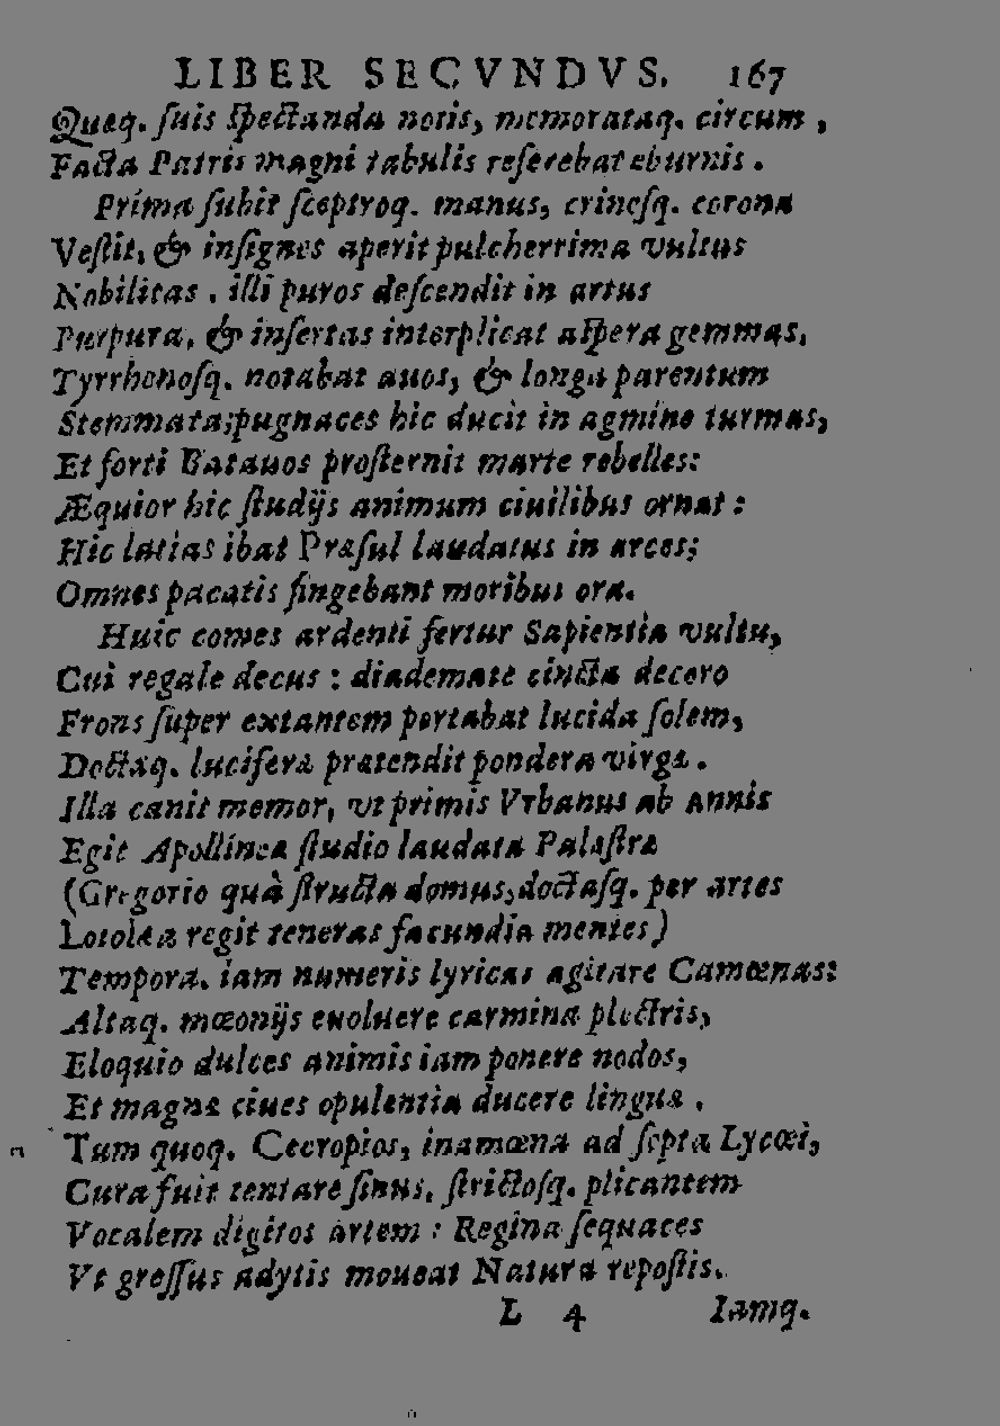 LIBER SECVNDVS. 167
Quæq. ſuis ſpectanda notis, memorataq. circum,
Facta Patris magni tabulis referebat eburnis.
Prima ſubit ſceptroq. manus, crineſq. corona
Veſtit, & inſignes aperit pulcherrima vultus
Nobilitas. illi puros deſcendit in artus
Purpura, & inſertas interplicat aſpera gemmas,
Tyrrhenoſq. notabat auos, & longa parentum
Stemmata; pugnaces hic ducit in agmine turmas,
Et forti Batauos proſternit marte rebelles:
Æquior hic ſtudijs animum ciuilibus ornat:
Hic latias ibat Præſul laudatus in arces;
Omnes pacatis fingebant moribus ora.
Huic comes ardenti fertur Sapientia vultu,
Cui regale decus: diademate cincta decoro
Frons ſuper extantem portabat lucida ſolem,
Doctæq. luciferæ prætendit pondera virgæ.
Illa canit memor, vt primis Vrbanus ab annis
Egit Apollinea ſtudio laudata Palæſtra
(Gregorio quà ſtructa domus, doctaſq. per artes
Loiolæa regit teneras facundia mentes)
Tempora. iam numeris lyricas agitare Camœnas:
Altaq. mœonijs euoluere carmina plectris,
Eloquio dulces animis iam ponere nodos,
Et magnæ ciues opulentia ducere linguæ.
Tum quoq. Cecropios, inamœna ad ſepta Lycœi,
Cura fuit tentare ſinus, ſtrictoſq. plicantem
Vocalem digitos artem: Regina ſequaces
Vt greſſus adytis moueat Natura repoſtis.
L 4 Iamq.